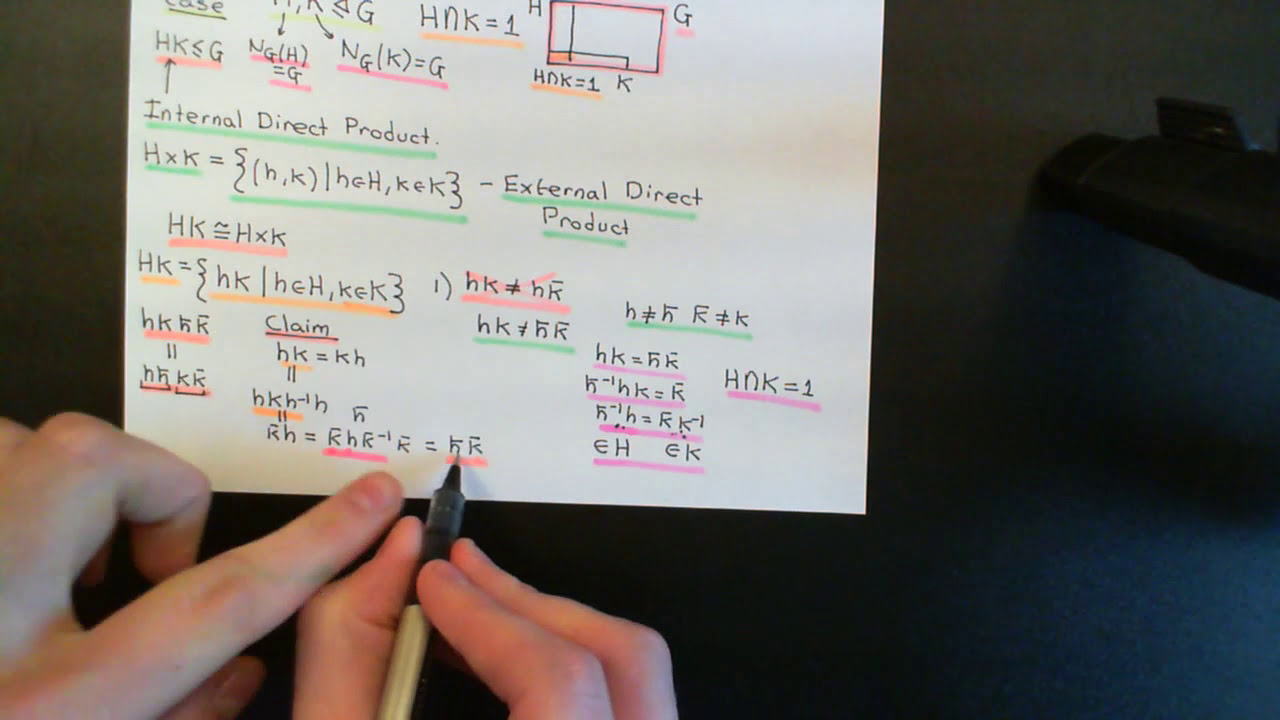 case H, K ⊴ G H∩K = 1 H G
HK ≤ G N_G(H) = G N_G(K) = G H∩K = 1 K
Internal Direct Product.
H×K = {(h,k) | h∈H, k∈K} - External Direct Product
HK ≅ H×K
HK = {hk | h∈H, k∈K} 1) hk ≠ h̄k̄
hk ≠ h̄k̄ h ≠ h̄ k̄ ≠ k
hkh̄k̄ Claim
= hk = kh hk = h̄k̄
hh̄kk̄ = h̄⁻¹hk = k̄ H∩K = 1
hkh⁻¹h h̄ h̄⁻¹h = k̄k⁻¹
= k̄h = k̄hk̄⁻¹k̄ = h̄k̄ ∈H ∈K